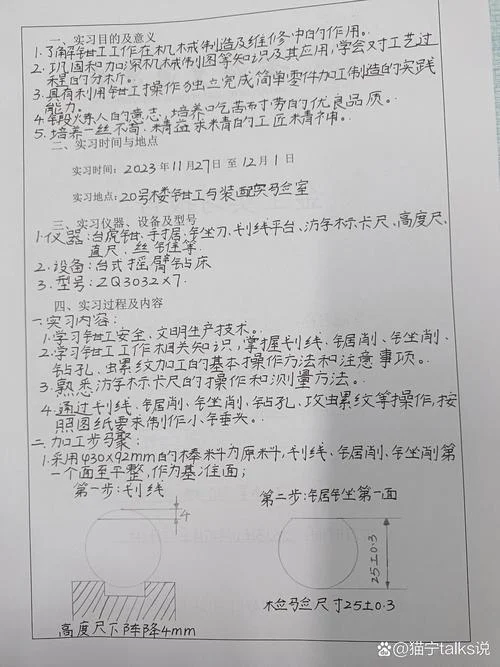 一、实习目的及意义
1.了解钳工工作在机械制造及维修中的作用。
2.巩固和加深机械制图等知识及其应用,学会对工艺过
程的分析。
3.具有利用钳工操作独立完成简单零件加工制造的实践
能力。
4.锻炼人的意志,培养吃苦耐劳的优良品质。
5.培养一丝不苟.精益求精的工匠精神。
二、实习时间与地点
实习时间:2023年11月27日至12月1日
实习地点:20号楼钳工与装配实验室
三、实习仪器、设备及型号
1.仪器:台虎钳、手锯、锉刀、划线平台、游标卡尺、高度尺、
直尺、丝锥等
2.设备:台式摇臂钻床
3.型号:ZQ3032×7.
四、实习过程及内容
一.实习内容:
1.学习钳工安全、文明生产技术。
2.学习钳工工作相关知识,掌握划线、锯削、锉削、
钻孔、螺纹加工的基本操作方法和注意事项。
3.熟悉游标卡尺的操作和测量方法。
4.通过划线、锯削、锉削、钻孔、攻螺纹等操作,按
照图纸要求制作小锤头。
二.加工步骤:
1.采用φ30×92mm的棒料为原料,划线、锯削、锉削第
一个面至平整,作为基准面;
第一步:划线
第二步:锯锉第一面
4
25±0.3
检验尺寸25±0.3
高度尺下降4mm
@猫宁talks说